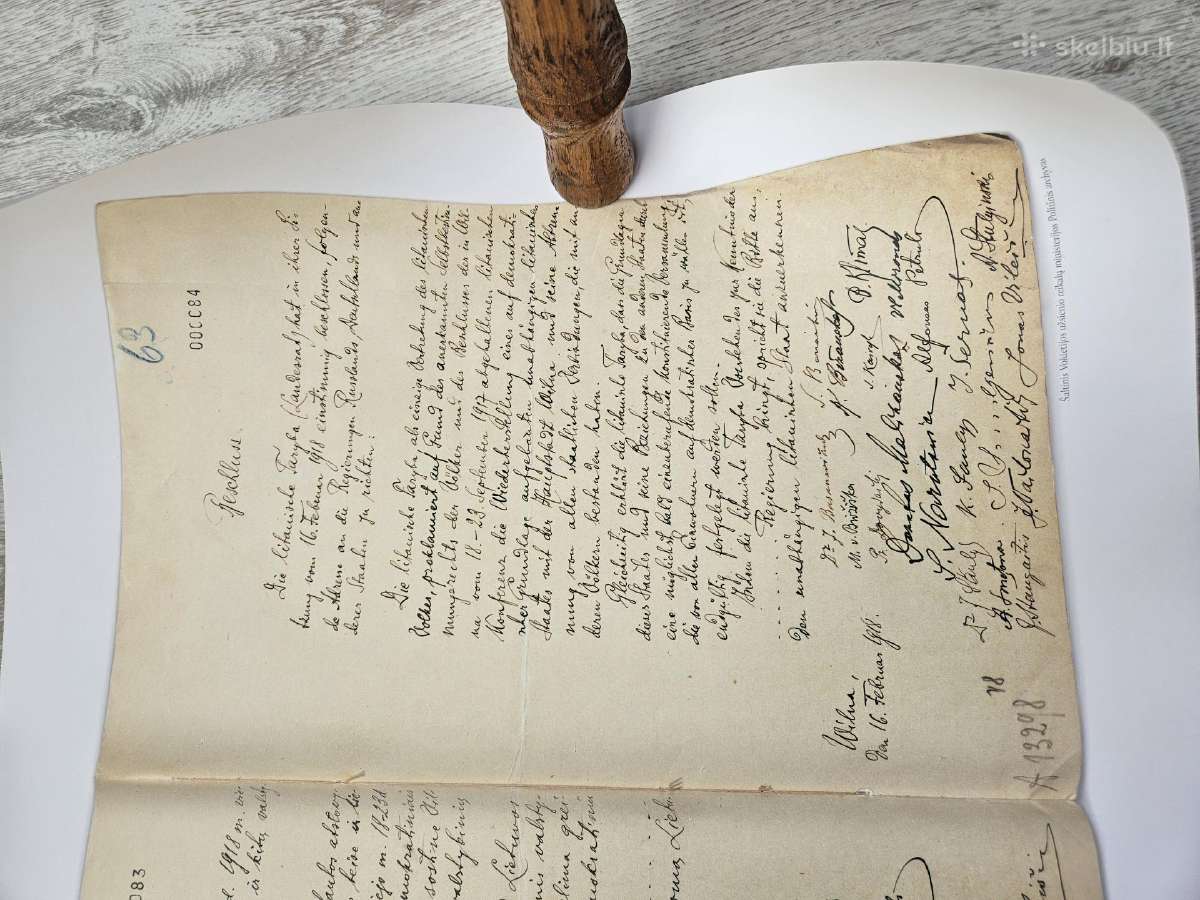 skelbiu.lt
63
000084
Beschluss.
Die litauische Taryba (Landesrat) hat in ihrer Sit
tzung vom 16. Februar 1918 einstimmig beschlossen, folgen-
de Adresse an die Regierungen Russlands, Deutschlands und an
derer Staaten zu richten:
Die litauische Taryba als einzige Vertretung des litauischen
Volkes, proklamiert auf Grund des anerkannten Selbstbestim-
mungsrechts der Völker und des Beschlusses der in Wil-
na vom 18-23. September 1917 abgehaltenen litauischen
Konferenz die Wiederherstellung eines auf demokrati-
scher Grundlage aufgebauten unabhängigen litauischen
Staates mit der Hauptstadt Wilna und seine Abtren-
nung von allen staatlichen Verbindungen, die mit an
deren Völkern bestanden haben.
Gleichzeitig erklärt die litauische Taryba, dass die Grundlagen
dieses Staates und seine Beziehungen zu den anderen Staaten der
eine möglichst bald einzuberufende konstituierende Versammlung,
die von allen Einwohnern auf demokratischer Basis zu wählen ist,
endgültig festgelegt werden sollen.
Indem die litauische Taryba Vorstehendes zur Kenntnis der
...... Regierung bringt, spricht sie die Bitte aus,
den unabhängigen litauischen Staat anzuerkennen.
Wilna,
den 16. Februar 1918.
Dr J. Basanavičius
S. Banaitis
M. v. Biržiška
K. Bizauskas
P. Dovydaitis
S. Kairys
P. Klimas
Donatas Malinauskas
Vl. Mironas
S. Narutavičius
Alfonsas Petrulis
Dr J. Šaulys
K. Šaulys
J. Šernas.
A. Smetona
J. Smilgevičius
A. Stulginskis
J. Staugaitis
J. Vailokaitis
Jonas Vileišis
A 13298
18
Šaltinis Vokietijos užsienio reikalų ministerijos Politinis archyvas
083
1918 m.
ir kitų valsty
m. 18-23 d
sostine Vil
valstybinių
Lietuvos